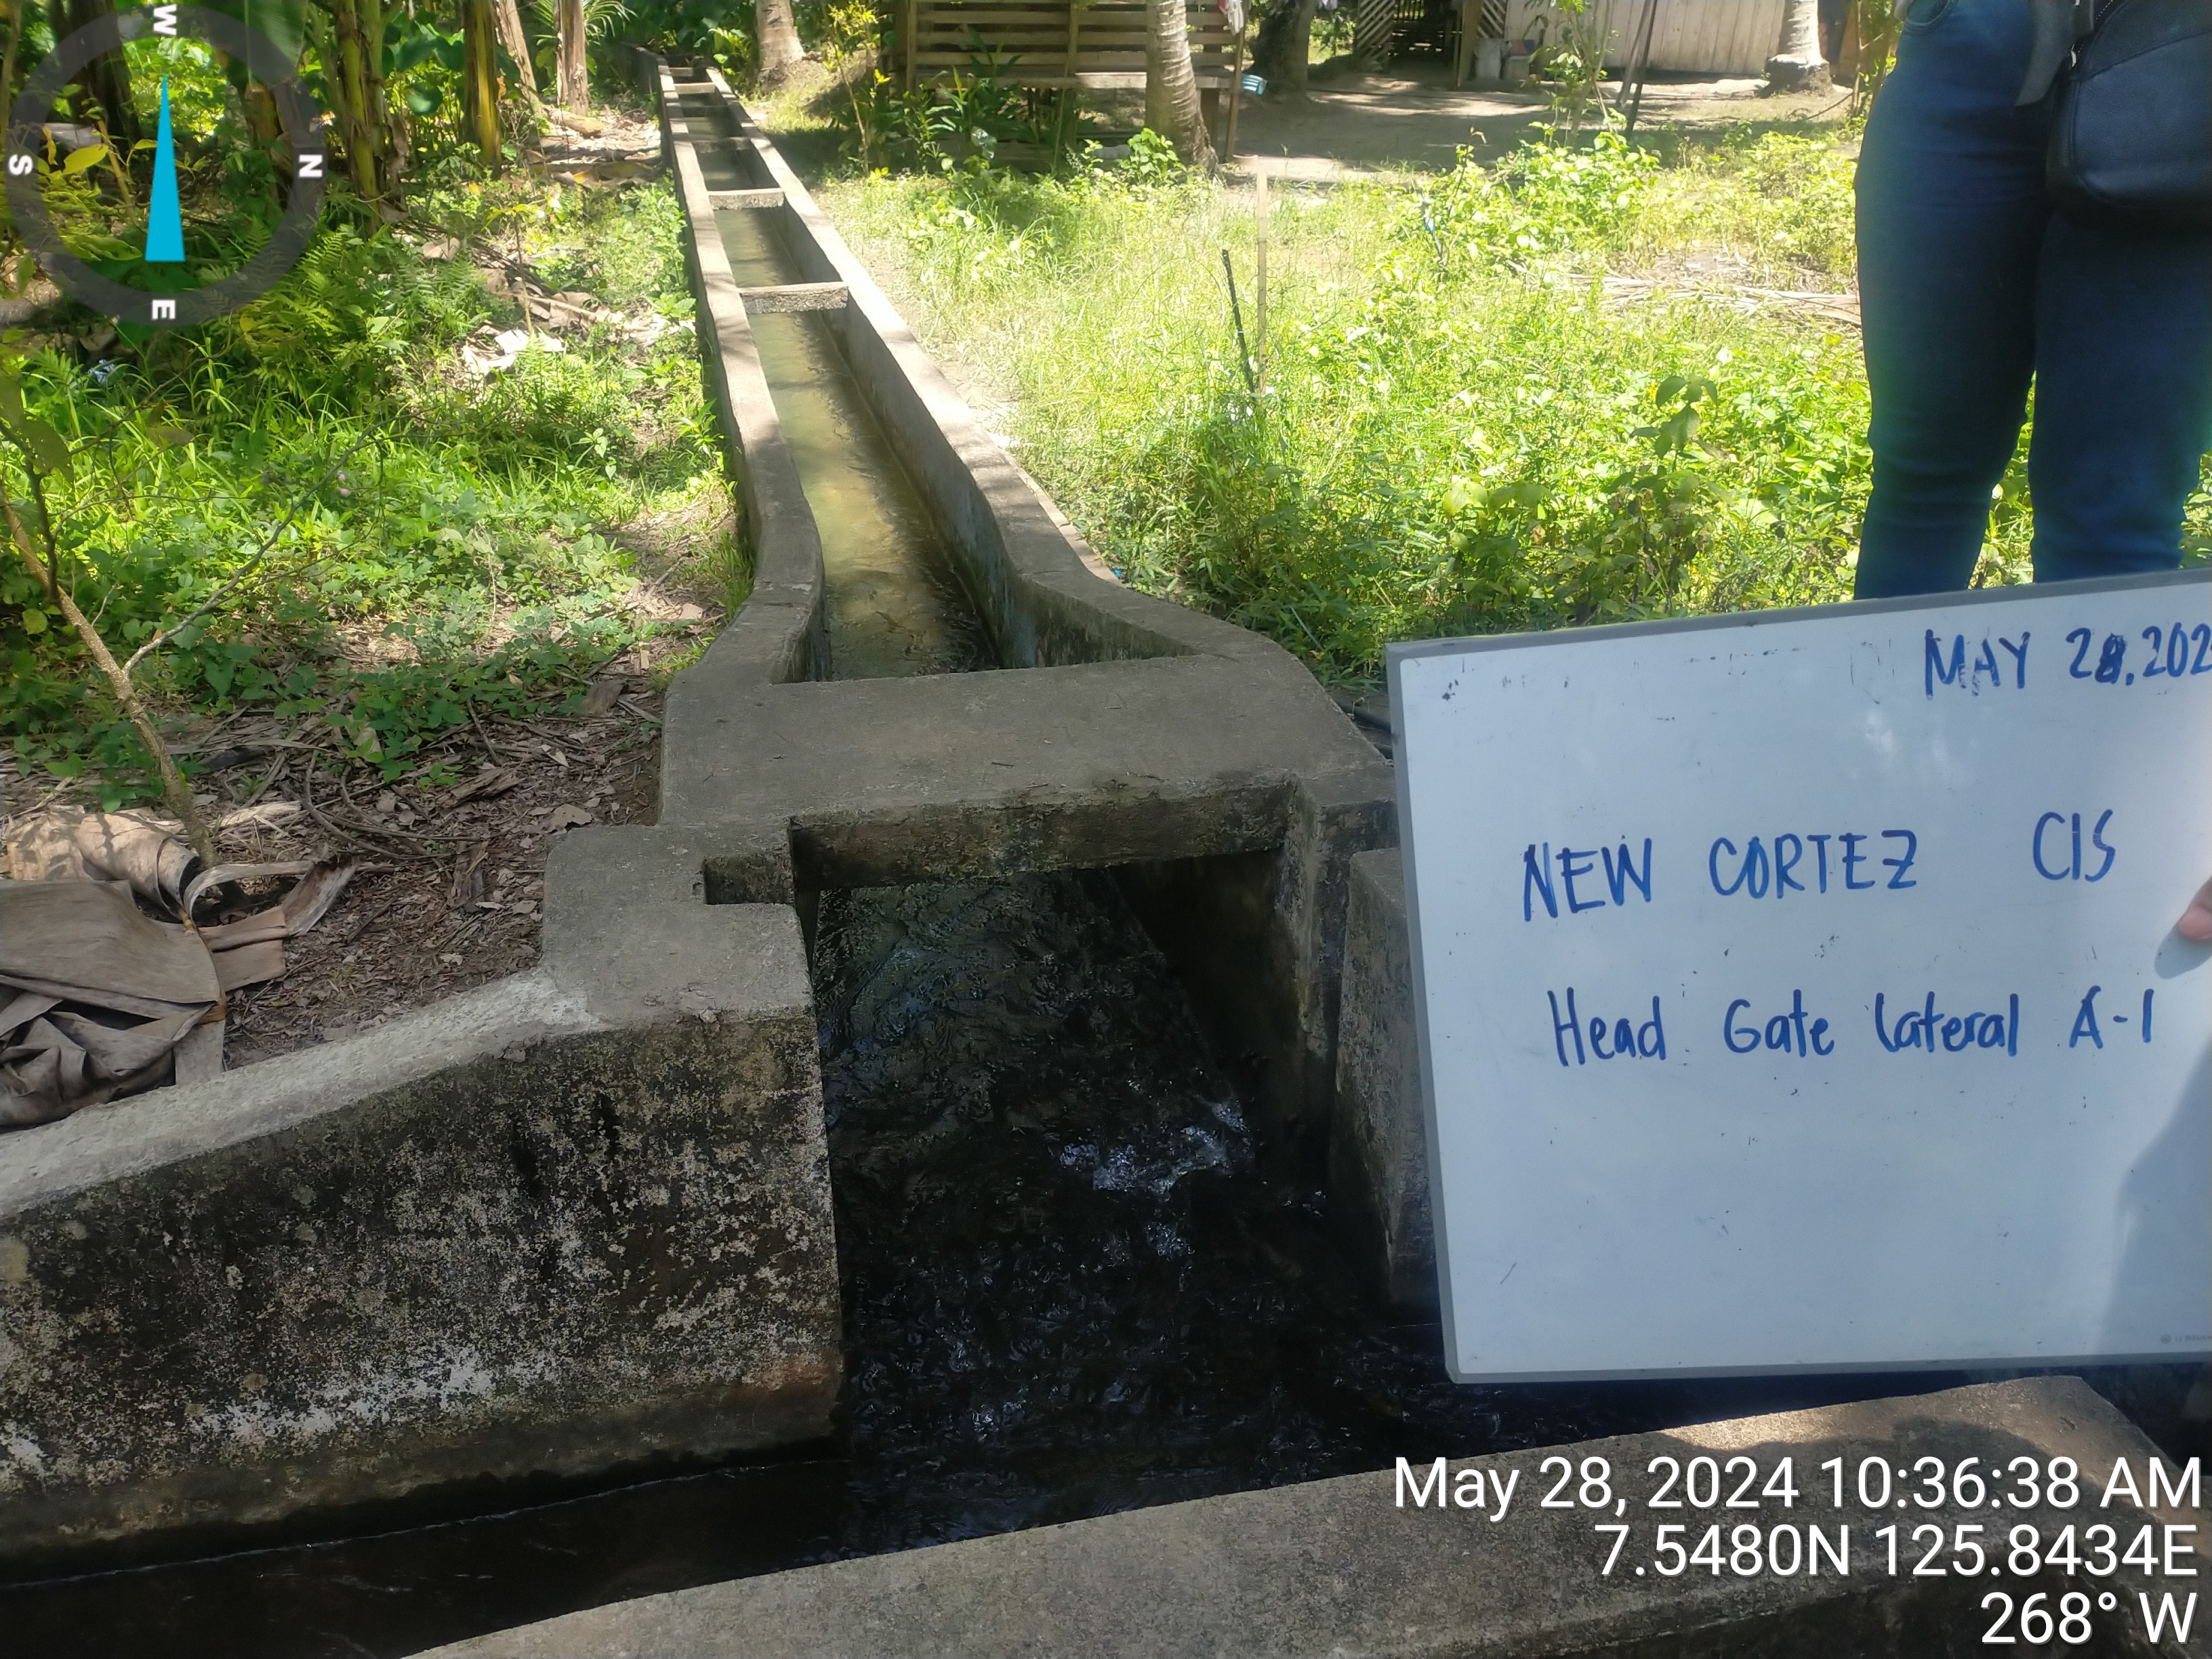 W
S
N
E
MAY 28, 202
NEW CORTEZ CIS
Head Gate lateral A-1
May 28, 2024 10:36:38 AM
7.5480N 125.8434E
268° W